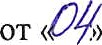 от «04»